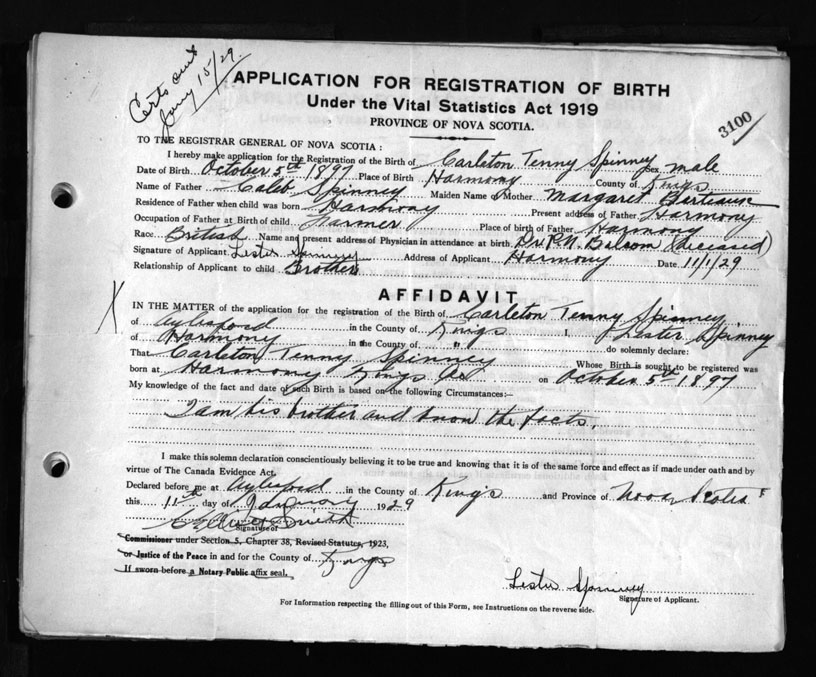 Certs out
Jany 15/29
APPLICATION FOR REGISTRATION OF BIRTH
Under the Vital Statistics Act 1919
PROVINCE OF NOVA SCOTIA.
3100
TO THE REGISTRAR GENERAL OF NOVA SCOTIA:
I hereby make application for the Registration of the Birth of Carleton Tenny Spinney Sex male
Date of Birth October 5th 1897 Place of Birth Harmony County of Kings
Name of Father Caleb Spinney Maiden Name of Mother Margaret
Residence of Father when child was born Harmony Present address of Father Harmony
Occupation of Father at Birth of child Farmer Place of birth of Father Harmony
Race British Name and present address of Physician in attendance at birth Dr. P.N. Balcom (deceased)
Signature of Applicant Lester Spinney Address of Applicant Harmony Date 11/1/29
Relationship of Applicant to child Brother
AFFIDAVIT
X
IN THE MATTER of the application for the registration of the Birth of Carleton Tenny Spinney
of Aylesford in the County of Kings I, Lester Spinney
of Harmony in the County of " do solemnly declare:
That Carleton Tenny Spinney Whose Birth is sought to be registered was
born at Harmony Kings Co on October 5th 1897
My knowledge of the fact and date of such Birth is based on the following Circumstances:—
I am his brother and know the facts.
I make this solemn declaration conscientiously believing it to be true and knowing that it is of the same force and effect as if made under oath and by
virtue of The Canada Evidence Act.
Declared before me at Aylesford in the County of Kings and Province of Nova Scotia
this 11th day of January 1929
Signature of
Commissioner under Section 5, Chapter 38, Revised Statutes, 1923,
or Justice of the Peace in and for the County of Kings
If sworn before a Notary Public affix seal.
Lester Spinney
Signature of Applicant.
For Information respecting the filling out of this Form, see Instructions on the reverse side.